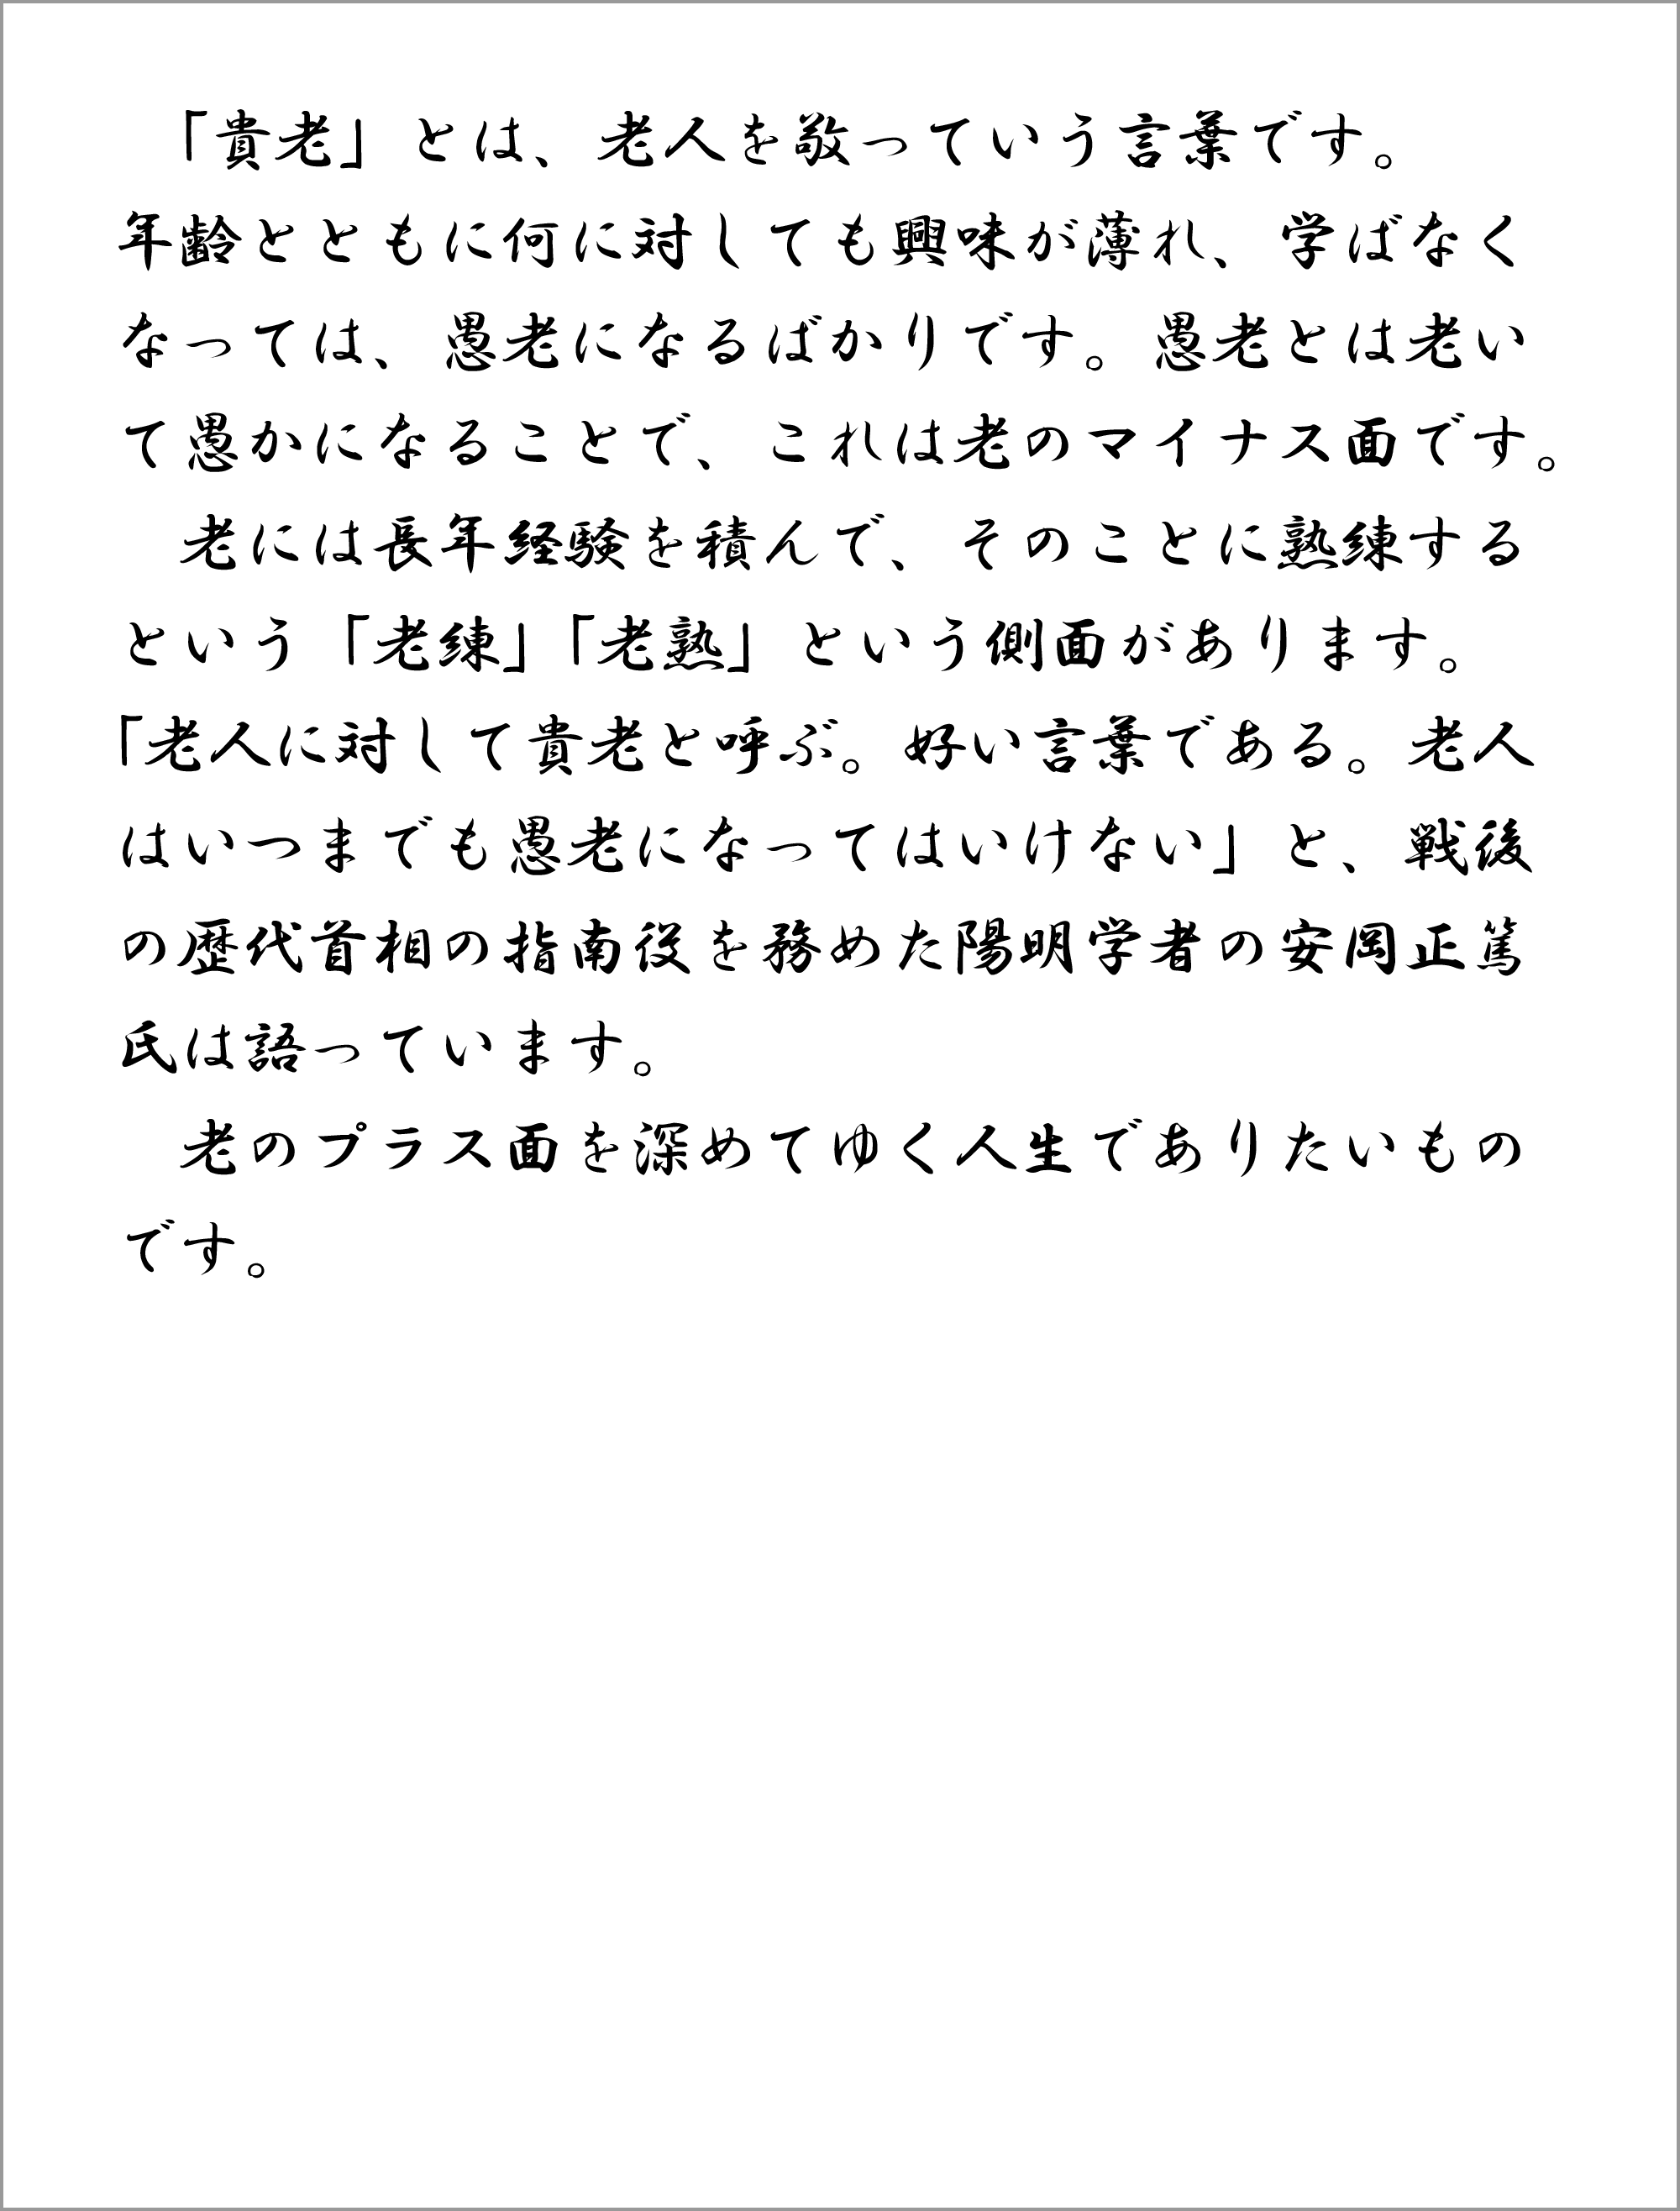 「貴老」とは、老人を敬っていう言葉です。
年齢とともに何に対しても興味が薄れ、学ばなく
なっては、愚老になるばかりです。愚老とは老い
て愚かになることで、これは老のマイナス面です。
　老には長年経験を積んで、そのことに熟練する
という「老練」「老熟」という側面があります。
「老人に対して貴老と呼ぶ。好い言葉である。老人
はいつまでも愚老になってはいけない」と、戦後
の歴代首相の指南役を務めた陽明学者の安岡正篤
氏は語っています。
　老のプラス面を深めてゆく人生でありたいもの
です。